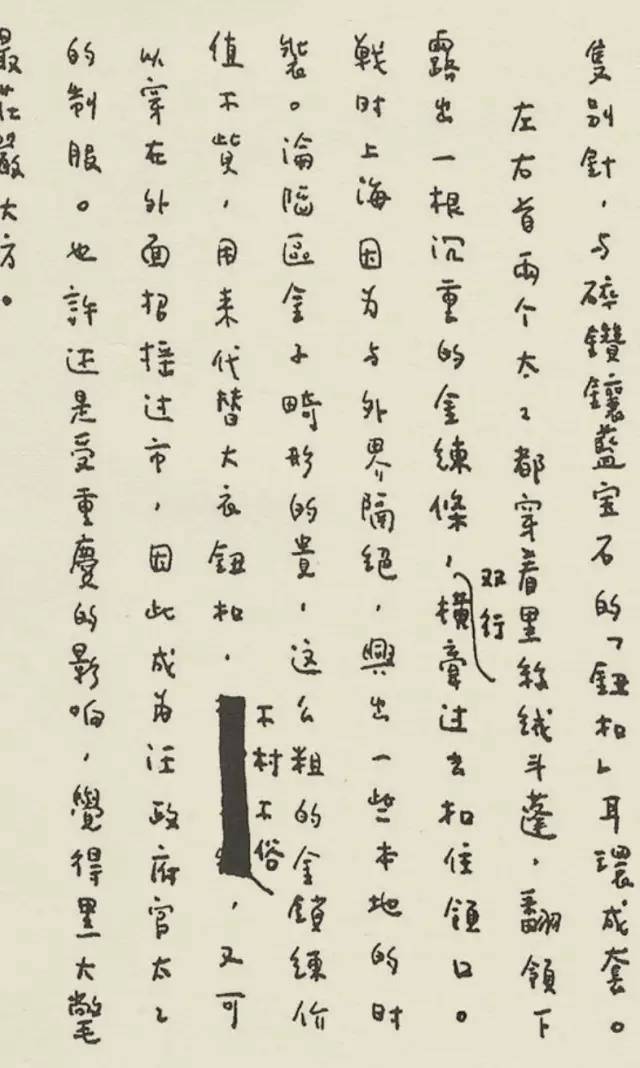 隻别針，与碎鑽鑲藍宝石的「鈕扣」耳環成套。
左右首兩个太〻都穿着黑絲絨斗蓬，翻領下
露出一根沉重的金練條，双行橫霄过去扣住領口。
戦时上海因为与外界隔絕，興出一些本地的时
裝。淪陷區金子畸形的貴，这么粗的金鎖練价
值不貲，用来代替大衣鈕扣，不村不俗，又可
以穿在外面招搖过市，因此成为汪政府官太〻
的制服。也許还是受重慶的影响，覺得黑大氅
最庄嚴大方。